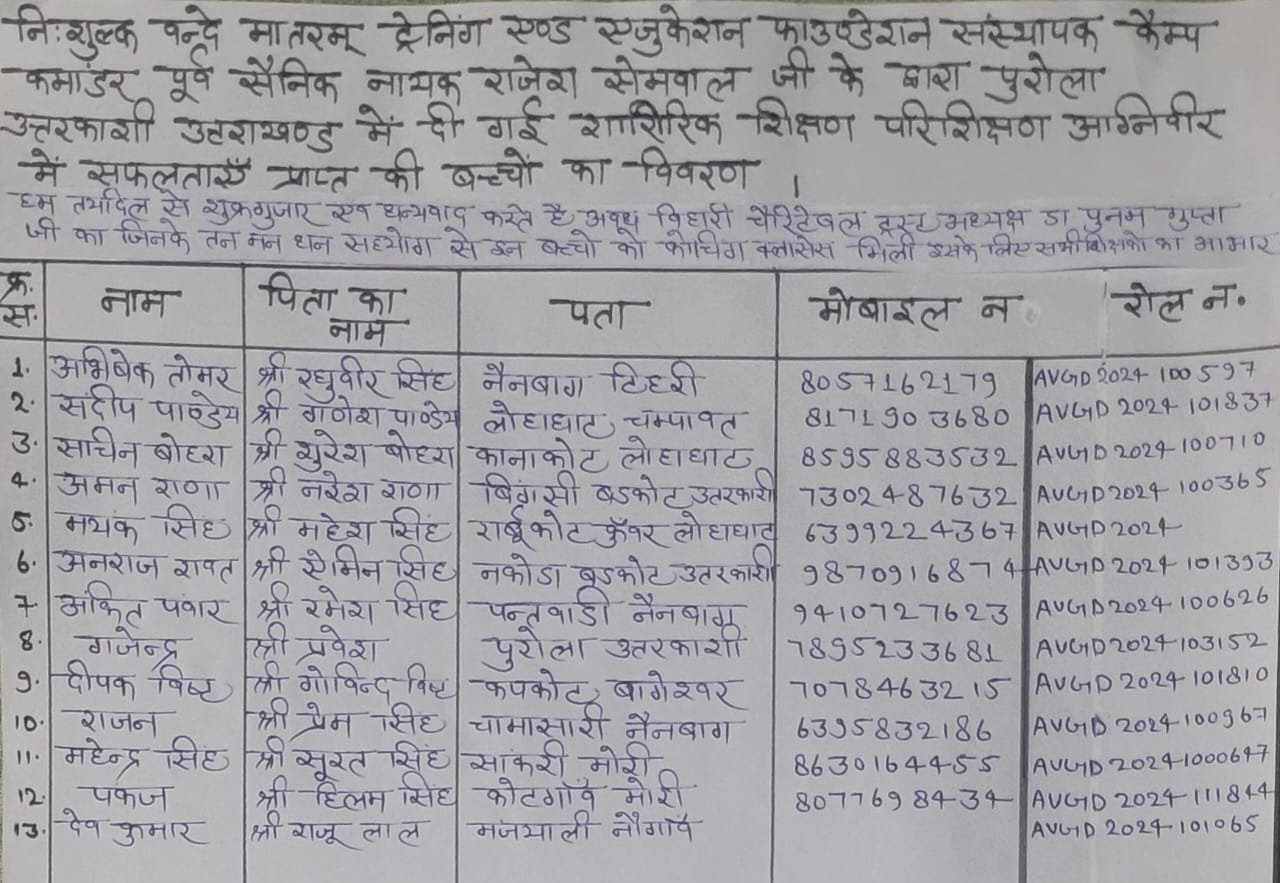 निःशुल्क वन्दे मातरम् ट्रेनिंग एण्ड एजुकेशन फाउण्डेशन संस्थापक कैम्प
कमांडर पूर्व सैनिक नायक राजेश सेमवाल जी के द्वारा पुरोला
उत्तरकाशी उत्तराखण्ड में दी गई शारिरिक शिक्षण परिशिक्षण अग्निवीर
में सफलताएँ प्राप्त की बच्चों का विवरण ।
हम तयदिल से शुक्रगुजार एवं धन्यवाद करते है अवध विहारी चैरिटेबल ट्रस्ट अध्यक्ष डा पुनम गुप्ता
जी का जिनके तन मन धन सहयोग से इन बच्चो को कोचिंग क्लासेस मिली इसके लिए सभी शिक्षको का आभार
क्र. स. नाम पिता का नाम पता मोबाइल न रोल न.
1. अभिषेक तोमर श्री रघुवीर सिंह नैनबाग टिहरी 8057162179 AVGD 2024 100597
2. संदीप पाण्डेय श्री गणेश पाण्डेय लोहाघाट चम्पावत 8171903680 AVGD 2024 101837
3. सचिन बोहरा श्री सुरेश बोहरा कानाकोट लोहाघाट 8595883532 AVGD 2024 100710
4. अमन राणा श्री नरेश राणा बिंगसी बडकोट उतरकाशी 7302487632 AVGD 2024 100365
5. मयंक सिंह श्री महेश सिंह कुँवर लोहाघाट 6399224367 AVGD 2024
6. अनराज रावत श्री सेमिन सिंह नकोडा बडकोट उतरकाशी 9870916874 AVGD 2024 101393
7 अंकित पंवार श्री रमेश सिंह पन्तवाडी नैनबाग 9410727623 AVGD 2024 100626
8. गजेन्द्र श्री प्रवेश पुरोला उत्तरकाशी 7895233681 AVGD 2024 103152
9. दीपक बिष्ट श्री गोविन्द बिष्ट कपकोट बागेश्वर 7078463215 AVGD 2024 101810
10. राजन श्री प्रेम सिंह चामासारी नैनबाग 6395832186 AVGD 2024 100967
11. महेन्द्र सिंह श्री सूरत सिंह सांकरी मोरी 8630164455 AVGD 2024 1000647
12. पंकज श्री हिलम सिंह कोटगाँव मोरी 8077698434 AVGD 2024 111844
13. देव कुमार श्री राजू लाल मंजयाली नौगाँव AVGD 2024 101065